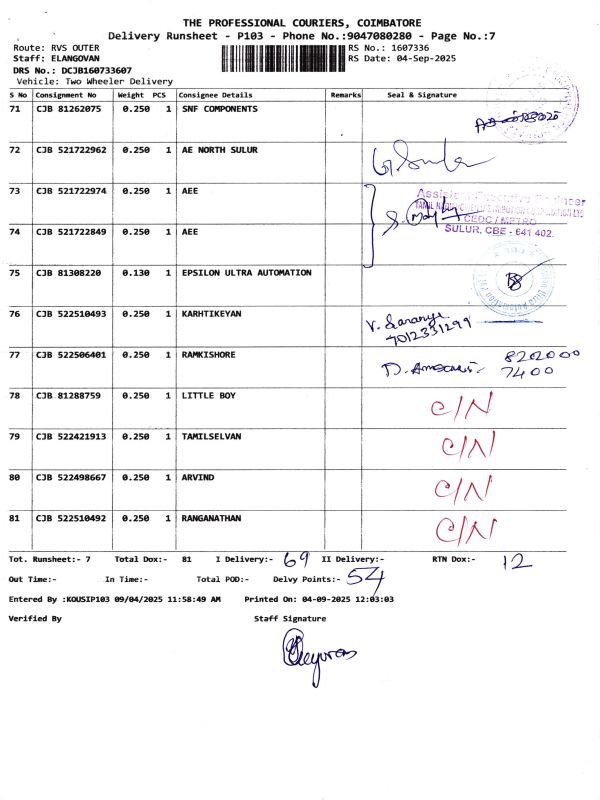 THE PROFESSIONAL COURIERS, COIMBATORE
Delivery Runsheet - P103 - Phone No.:9047080280 - Page No.:7
Route: RVS OUTER RS No.: 1607336
Staff: ELANGOVAN RS Date: 04-Sep-2025
DRS No.: DCJB160733607
Vehicle: Two Wheeler Delivery
S No Consignment No Weight PCS Consignee Details Remarks Seal & Signature
71 CJB 81262075 0.250 1 SNF COMPONENTS
72 CJB 521722962 0.250 1 AE NORTH SULUR
73 CJB 521722974 0.250 1 AEE
Assistant Executive Engineer
CEDC / METRO
SULUR, CBE - 641 402.
74 CJB 521722849 0.250 1 AEE
75 CJB 81308220 0.130 1 EPSILON ULTRA AUTOMATION
76 CJB 522510493 0.250 1 KARHTIKEYAN V. Saranya
7012331299
77 CJB 522506401 0.250 1 RAMKISHORE 8202000
7400
78 CJB 81288759 0.250 1 LITTLE BOY C/N
79 CJB 522421913 0.250 1 TAMILSELVAN C/N
80 CJB 522498667 0.250 1 ARVIND C/N
81 CJB 522510492 0.250 1 RANGANATHAN C/N
Tot. Runsheet:- 7 Total Dox:- 81 I Delivery:- 69 II Delivery:- RTN Dox:- 12
Out Time:- In Time:- Total POD:- Delvy Points:- 54
Entered By :KOUSIP103 09/04/2025 11:58:49 AM Printed On: 04-09-2025 12:03:03
Verified By Staff Signature